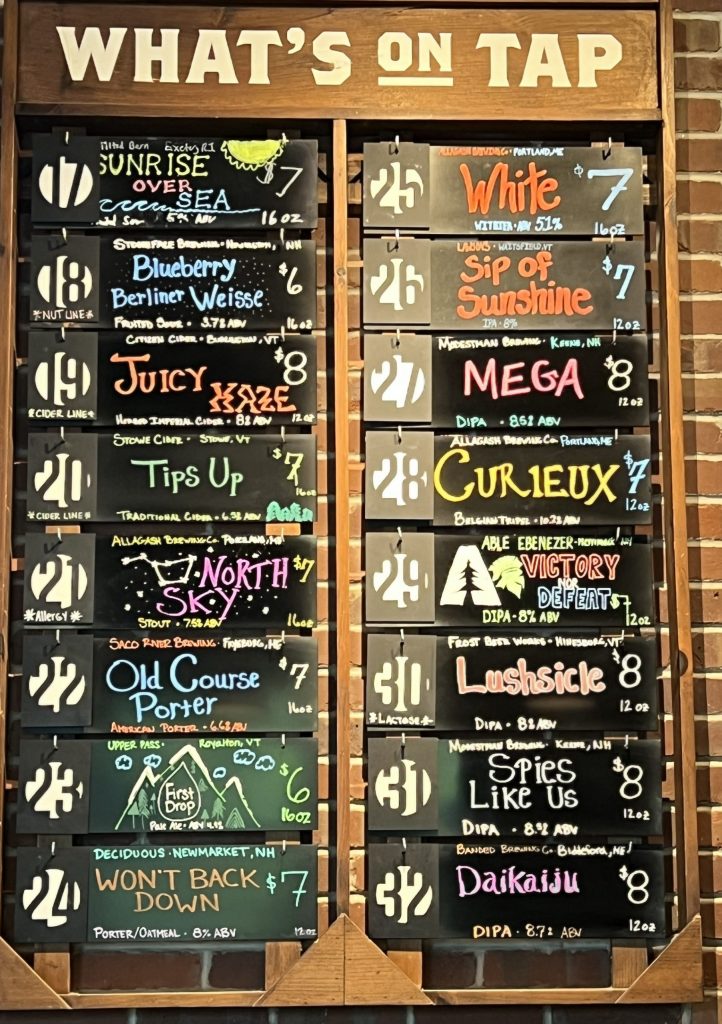 WHAT'S ON TAP
17
Exeter, RI
SUNRISE
OVER
SEA
$7
5% ABV
16 oz
18
STONEFACE BREWING · NEWINGTON, NH
Blueberry
Berliner Weisse
$6
*NUT LINE*
FRUITED SOUR · 3.7% ABV
16 oz
19
CITIZEN CIDER · BURLINGTON, VT
JUICY
HAZE
$8
*CIDER LINE*
HOPPED IMPERIAL CIDER · 8% ABV
12 oz
20
STOWE CIDER · STOWE, VT
TIPS UP
$7
16oz
*CIDER LINE*
TRADITIONAL CIDER · 6.3% ABV
21
ALLAGASH BREWING CO. PORTLAND, ME
NORTH
SKY
$7
*Allergy*
STOUT · 7.5% ABV
16oz
22
SACO RIVER BREWING · FRYEBURG, ME
Old Course
Porter
$7
16oz
AMERICAN PORTER · 6.6% ABV
23
UPPER PASS · Royalton, VT
First
Drop
$6
16oz
Pale Ale · ABV 4.9%
24
DECIDUOUS · NEWMARKET, NH
WON'T BACK
DOWN
$7
PORTER/OATMEAL · 8% ABV
12 oz
25
ALLAGASH BREWING CO · PORTLAND, ME
White
$7
WITBIER · ABV 5.1%
16oz
26
LAWSONS · WAITSFIELD, VT
Sip of
Sunshine
$7
IPA · 8%
12oz
27
MODESTMAN BREWING · KEENE, NH
MEGA
$8
12 oz
DIPA · 8.5% ABV
28
ALLAGASH BREWING CO. PORTLAND, ME
CURIEUX
$7
12oz
BELGIAN TRIPEL · 10.2% ABV
29
ABLE EBENEZER · MERRIMACK, NH
VICTORY
NOR
DEFEAT
$7
DIPA · 8% ABV
12oz
30
FROST BEER WORKS · HINESBURG, VT
Lushsicle
$8
12 oz
*LACTOSE*
DIPA · 8% ABV
31
MODESTMAN BREWING · KEENE, NH
SPIES
LIKE US
$8
12oz
DIPA · 8.5% ABV
32
BANDED BREWING CO. Biddeford, ME
Daikaiju
$8
DIPA · 8.7% ABV
12oz